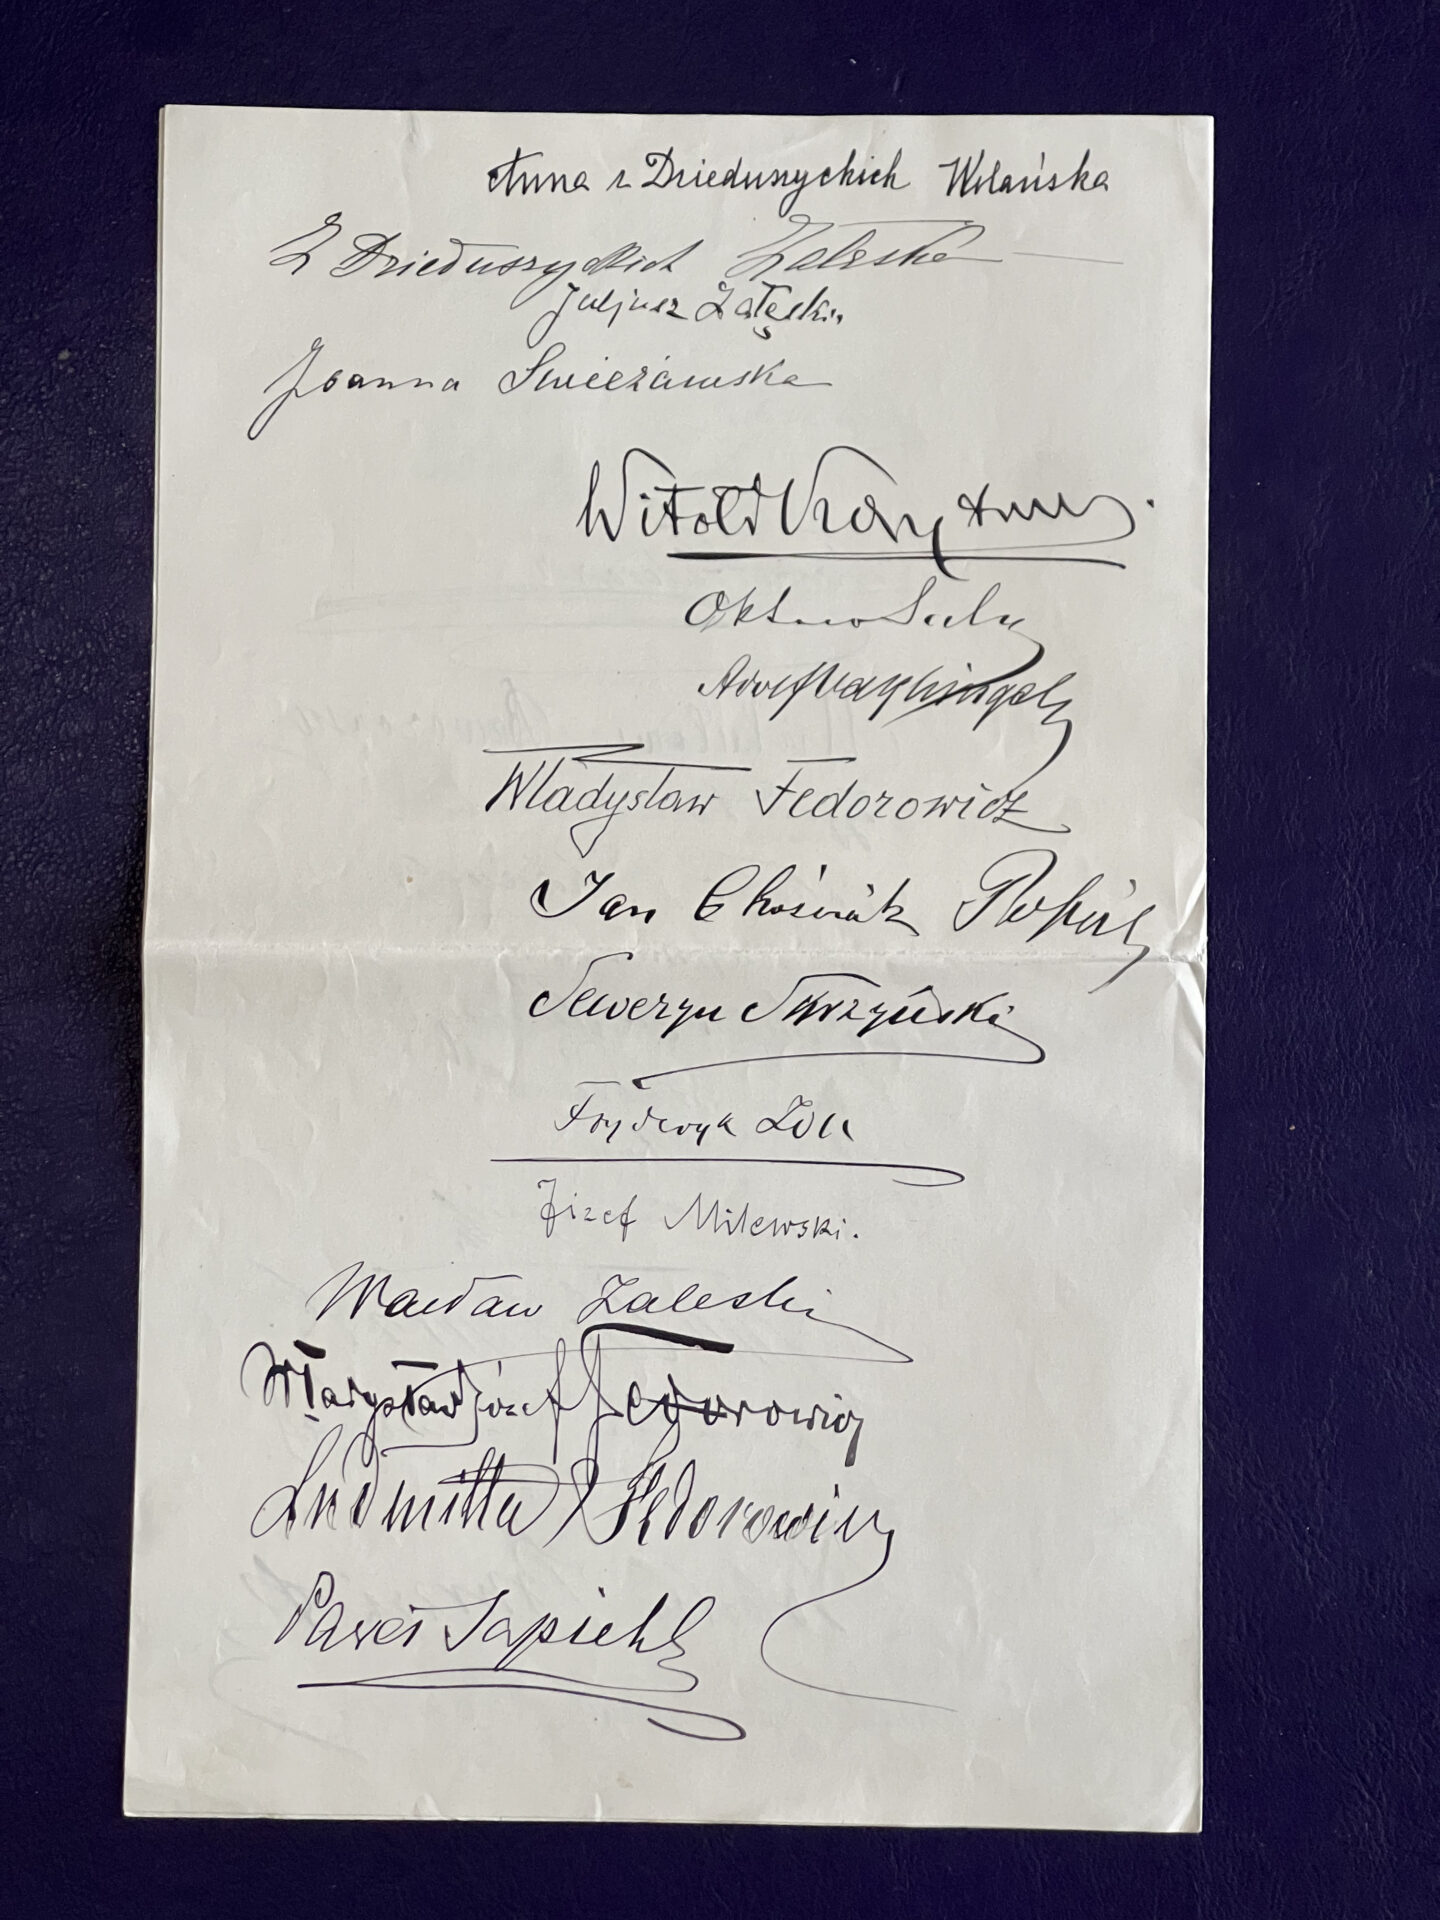 Anna z Dzieduszyckich Wolańska
Z Dzieduszyckich Zaleska
Juljusz Załęski.
Joanna Świeżawska
Witold
Oktaw Sala
Adolf Vayhinger
Władysław Fedorowicz
Jan Chośniak Popiel
Seweryn Skrzyński
Fryderyk Zoll
Józef Milewski.
Wacław Zaleski
Władysław Józef Fedorowicz
Ludmiłła Fedorowicz
Paweł Sapieha